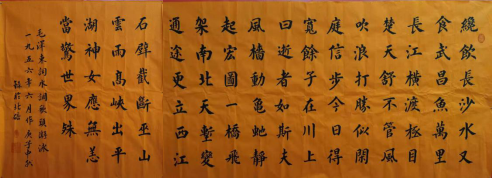 纔飲長沙水又
食武昌魚萬里
長江橫渡極目
楚天舒不管風
吹浪打勝似閒
庭信步今日得
寬餘子在川上
曰逝者如斯夫
風檣動龜蛇靜
起宏圖一橋飛
架南北天塹變
通途更立西江
石壁截斷巫山
雲雨高峽出平
湖神女應無恙
當驚世界殊
毛澤東詞水調歌頭游泳
一九五六年六月作庚子中秋